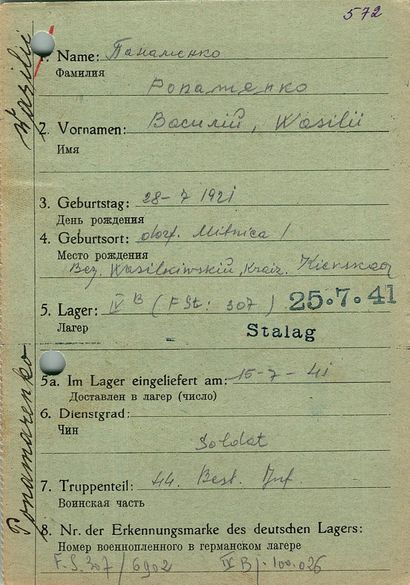 572
1. Name: Панаменко
Фамилия
Ponamenko
2. Vornamen: Василий, Wasilii
Имя
3. Geburtstag: 28-7 1921
День рождения
4. Geburtsort: dorf. Mitnica /
Место рождения
Bez. Wasilkiwskii, Kreis. Kienskaa
5. Lager: IV B (F St: 307) 25.7.41
Лагер
Stalag
5a. Im Lager eingeliefert am: 15-7-41
Доставлен в лагер (число)
6. Dienstgrad:
Чин
Soldat
7. Truppenteil: 44. Inf.
Воинская часть
8. Nr. der Erkennungsmarke des deutschen Lagers:
Номер военнопленного в германском лагере
F.S. 307/6902 IV B/.100.026
Ponamarenko Wasilii